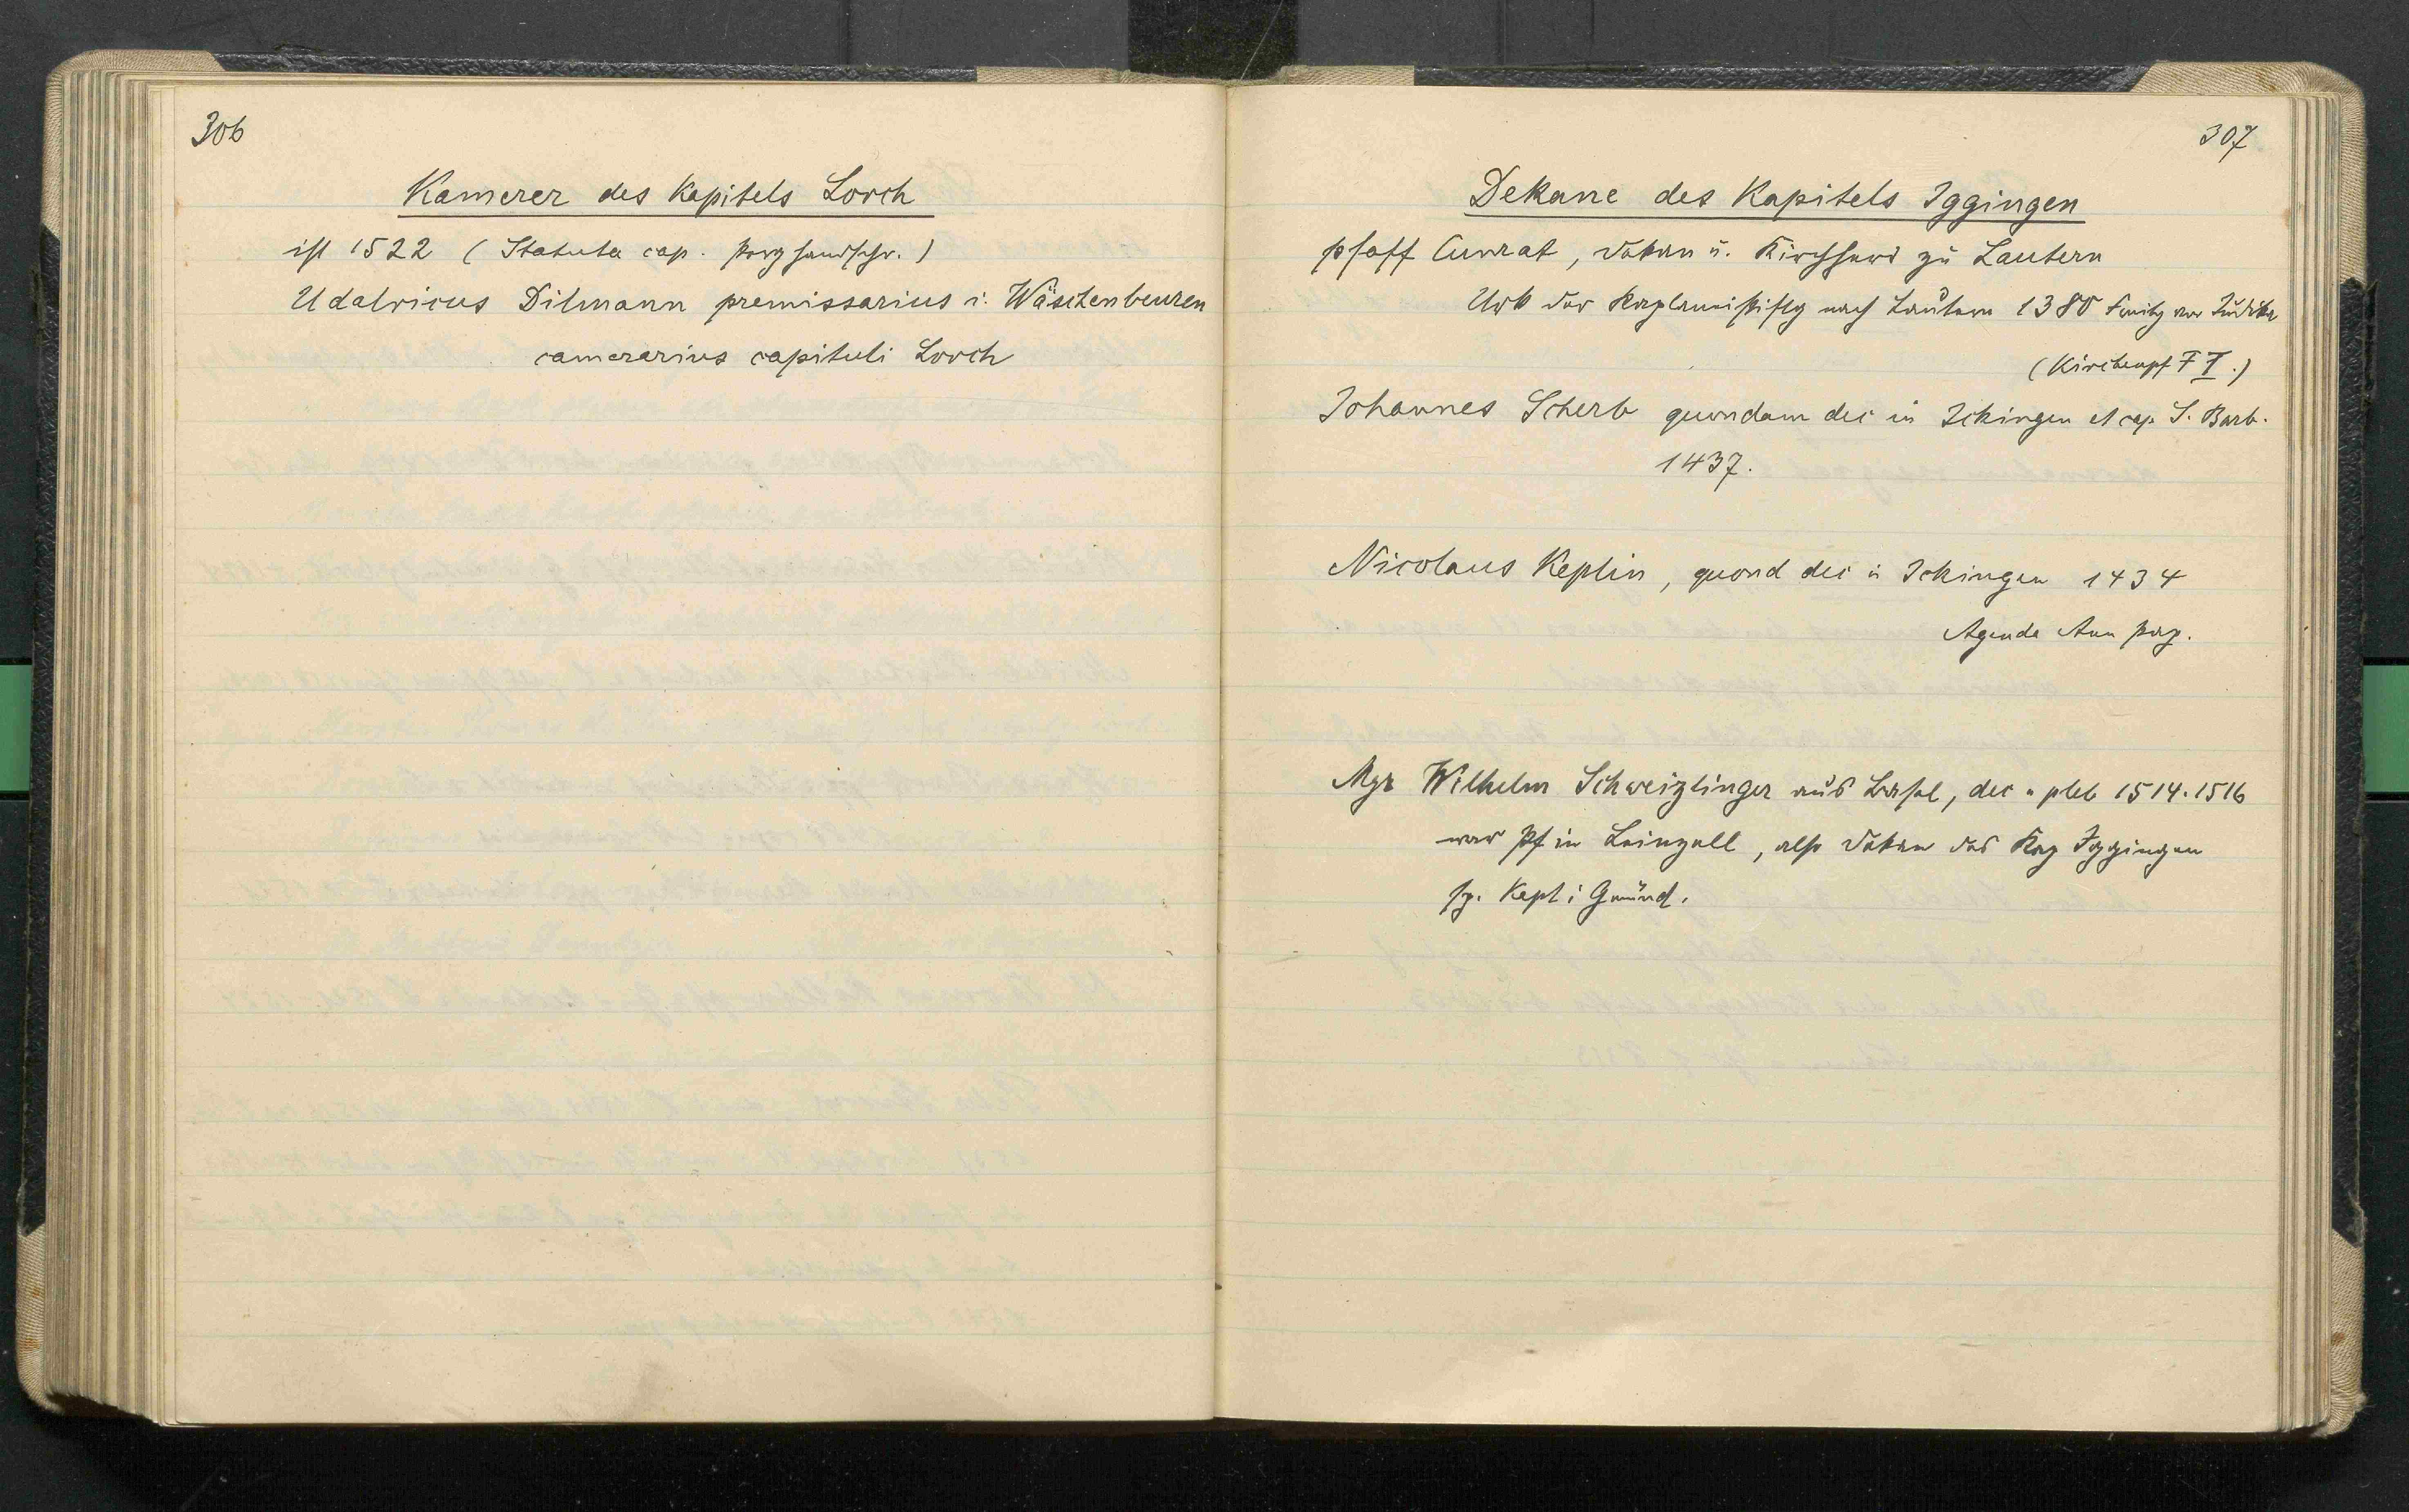 306
Kamerer des Kapitels Lorch
ist 1522 (Statuta cap. Perg handschr.)
Udalricus Dilmann premissarius i. Wäschenbeuren
camerarius capituli Lorch
307
Dekane des Kapitels Iggingen
pfaff Cunrat, dekan u. Kirchherr zu Lautern
Urk der Kaplaneistiftg nach Lautern 1380 Freitg vor Judika
(Kirchenpf F I.)
Johannes Scherb quondam dec in Ickingen et cap. S. Barb.
1437.
Nicolaus Keplin, quond dec i Ickingen 1434
Agenda Aun perg.
Mgr Wilhelm Schweizlinger aus Basel, dec u pleb 1514. 1516
war Pf in Leinzell, also dekan des Kap Iggingen
sp. Kapl i Gmünd.